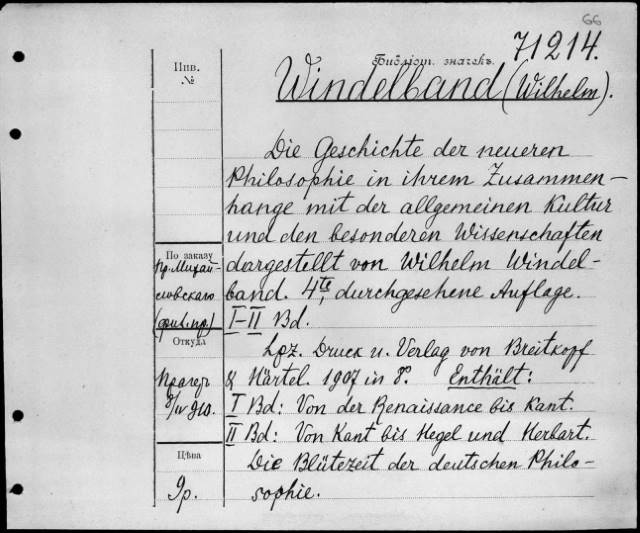 66
71214.
Библіот. значекъ.
Инв.
№
Windelband (Wilhelm).
Die Geschichte der neueren
Philosophie in ihrem Zusammen-
hange mit der allgemeinen Kultur
und den besonderen Wissenschaften
dargestellt von Wilhelm Windel-
band. 4te, durchgesehene Auflage.
I-II Bd.
Lpz. Druck u. Verlag von Breitkopf
& Härtel. 1907 in 8°. Enthält:
I Bd: Von der Renaissance bis Kant.
II Bd: Von Kant bis Hegel und Herbart.
Die Blütezeit der deutschen Philo-
sophie.
По заказу
Пр. Михай-
ловскаго
Откуда
Прагеръ
Цѣна
9р.